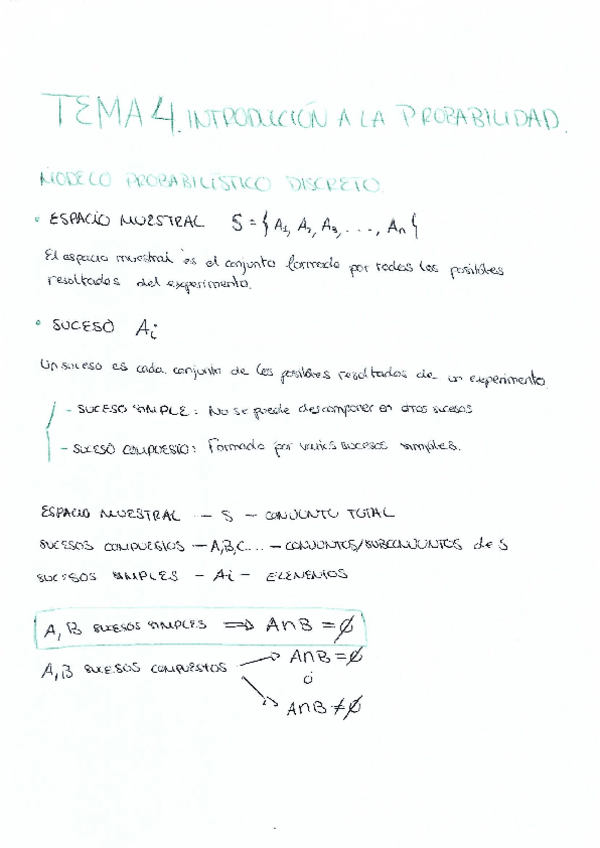 TEMA 4. INTRODUCCIÓN A LA PROBABILIDAD.
MODELO PROBABILÍSTICO DISCRETO.
• ESPACIO MUESTRAL S = { A1, A2, A3, ..., An }
El espacio muestral es el conjunto formado por todos los posibles
resultados del experimento.
• SUCESO Ai
Un suceso es cada conjunto de los posibles resultados de un experimento
- SUCESO SIMPLE: No se puede descomponer en otros sucesos
- SUCESO COMPUESTO: Formado por varios sucesos simples.
ESPACIO MUESTRAL - S - CONJUNTO TOTAL
SUCESOS COMPUESTOS - A, B, C... - CONJUNTOS/SUBCONJUNTOS de S
SUCESOS SIMPLES - Ai - ELEMENTOS
A, B SUCESOS SIMPLES ⟹ A∩B = ∅
A∩B = ∅
A, B SUCESOS COMPUESTOS
ó
A∩B ≠ ∅